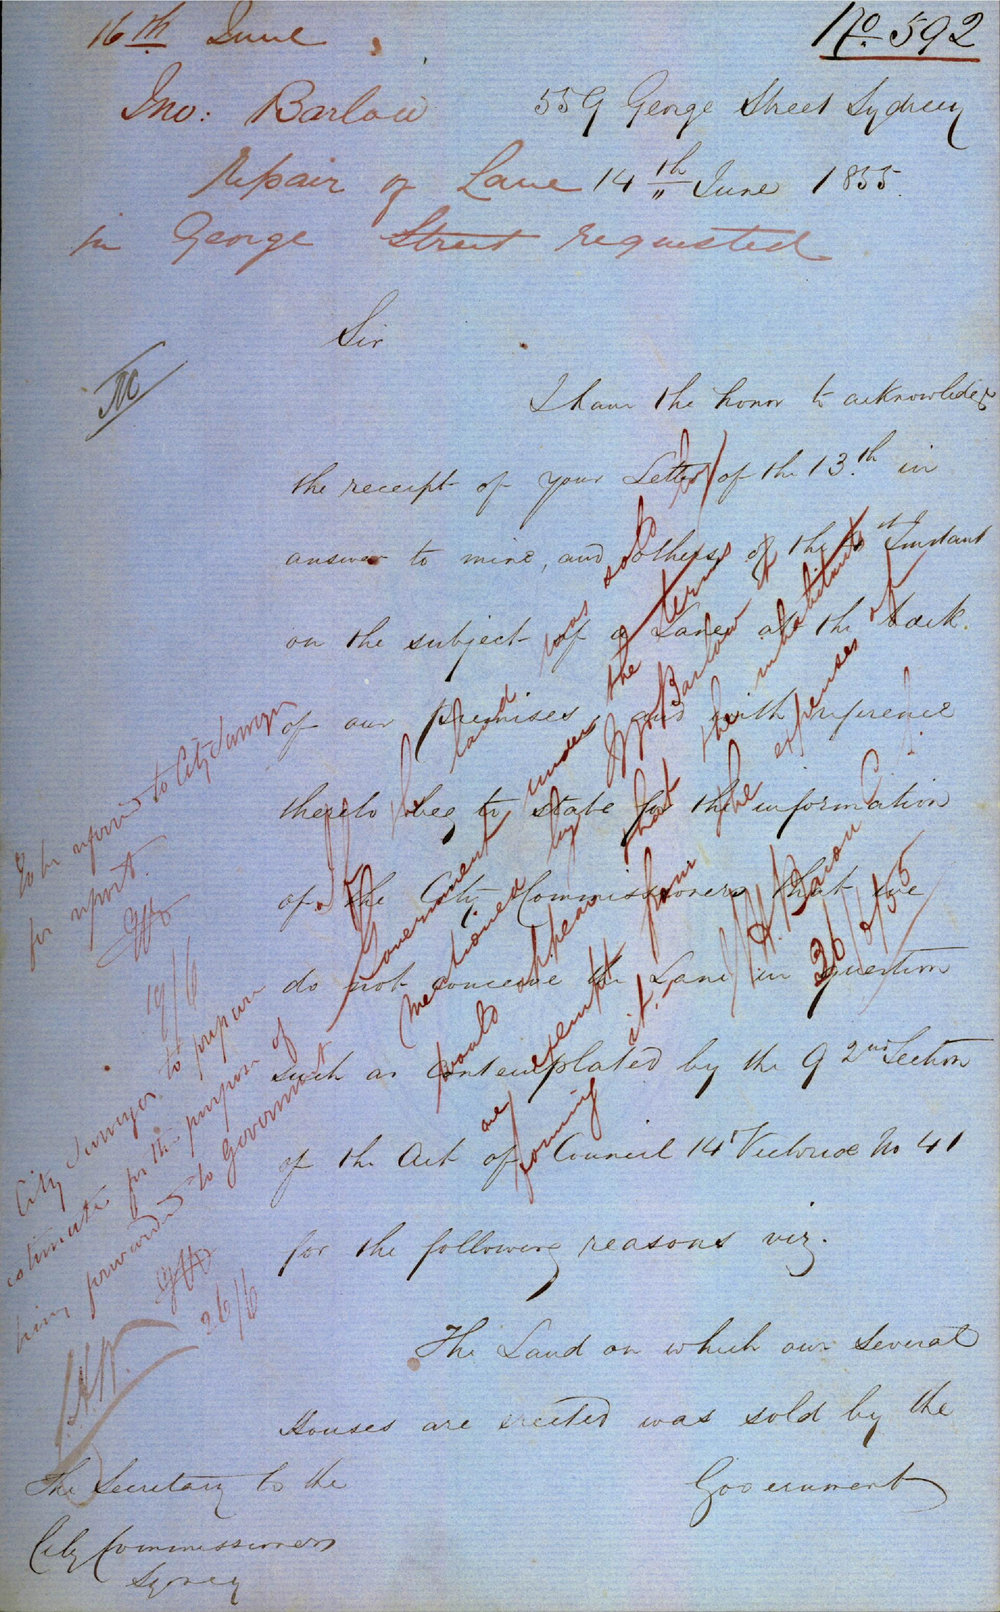 16th June
No. 592
Jno: Barlow
559 George Street Sydney
repair of Lane
14th June 1855.
in George Street requested
Sir
I have the honor to acknowledge
the receipt of your Letter of the 13.th in
answer to mine, and others of the 1st Instant
on the subject of a Lane at the back
of our premises, and with reference
thereto beg to state for the information
of the City Commissioners that we
do not conceive the Lane in question
such as contemplated by the 92nd Section
of the Act of Council 14 Victoriae No 41
for the following reasons viz.
The Land on which our several
Houses are erected was sold by the
Government
The Secretary to the
City Commissioners
Sydney
To be referred to City Surveyor
for report.
19/6
City Surveyor to prepare
estimate for the purpose of
being forwarded to Government
26/6
If the land was sold by
Government under the terms
mentioned by Jno Barlow it
would appear that the inhabitants
are exempt from the expenses of
forming it.
26/6/55